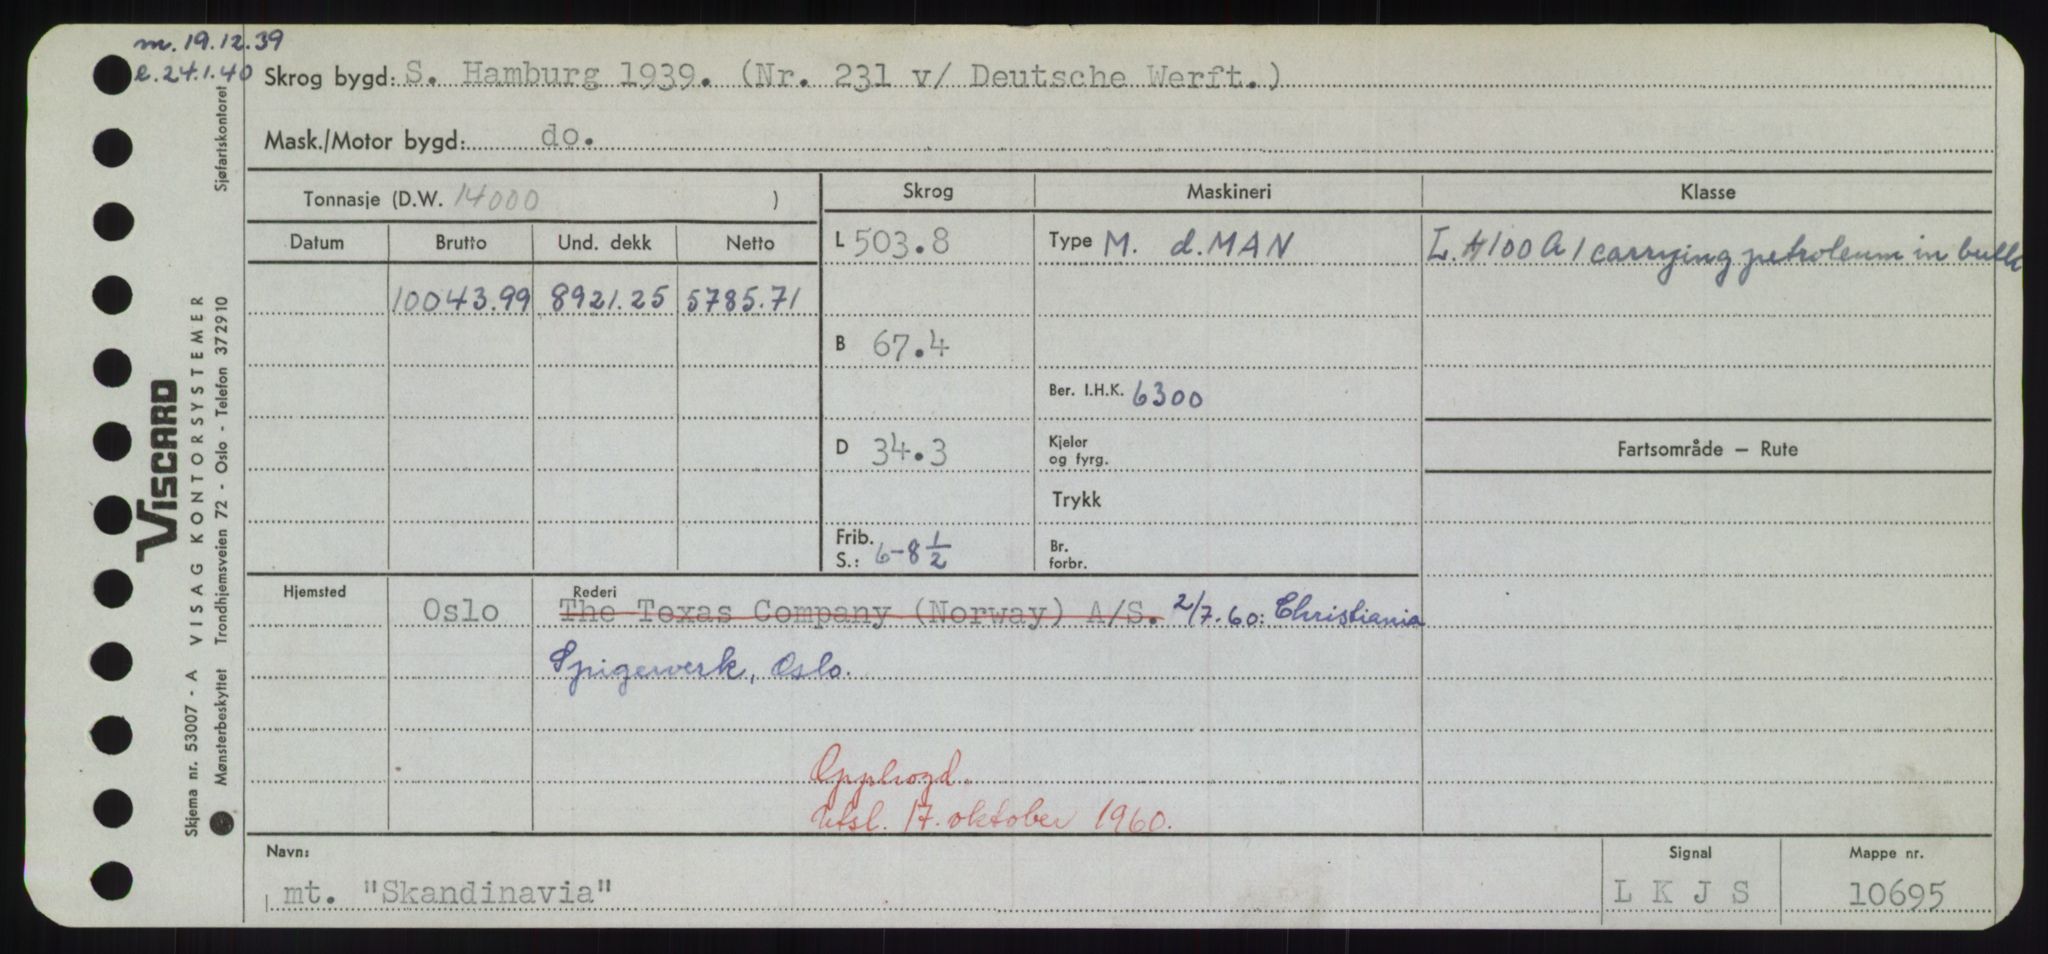 m. 19.12.39
e. 24.1.40
Skrog bygd: S. Hamburg 1939. (Nr. 231 v/ Deutsche Werft.)
Mask./Motor bygd: do.
Tonnasje (D.W. 14000 )
Skrog Maskineri Klasse
Datum Brutto Und. dekk Netto
L 503.8 Type M. d. MAN L. + 100 A 1 carrying petroleum in bulk
10043.99 8921.25 5785.71
B 67.4
Ber. I.H.K. 6300
D 34.3 Kjeler og fyrg. Fartsområde — Rute
Trykk
Frib. S.: 6-8 1/2 Br. forbr.
Hjemsted Rederi
Oslo The Texas Company (Norway) A/S. 2/7.60: Christiania
Spigerverk, Oslo.
Opphogd.
Utsl. 17. oktober 1960.
Navn: Signal Mappe nr.
mt. "Skandinavia" L K J S 10695
VISCARD
Skjema nr. 53007 - A VISAG KONTORSYSTEMER
Mønsterbeskyttet Trondhjemsveien 72 - Oslo - Telefon 372910 Sjøfartskontoret